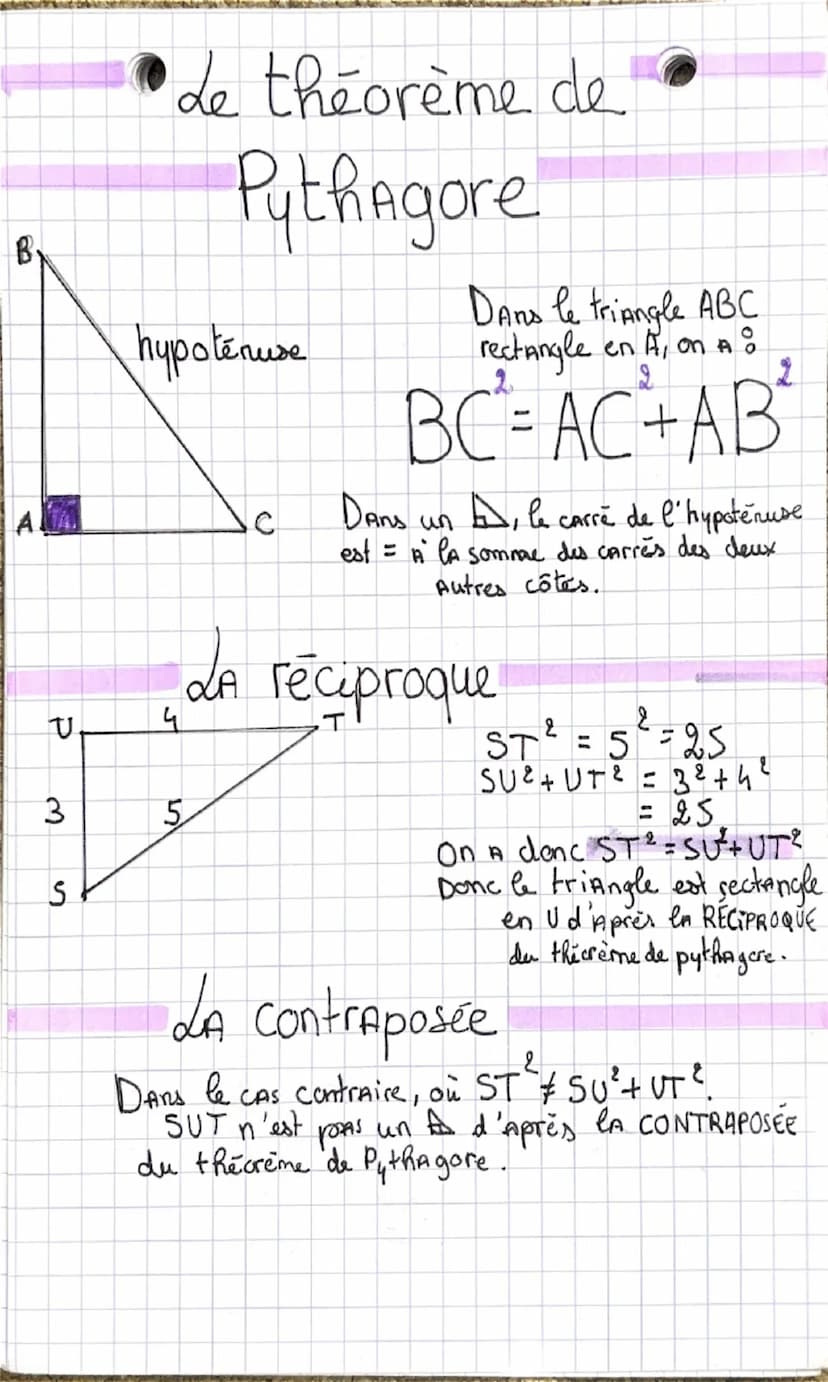 Le théorème de
Pythagore
B
hypoténuse
A
C
Dans le triangle ABC
rectangle en A, on a :
BC² = AC² + AB²
Dans un ◺, le carré de l'hypoténuse
est = à la somme des carrés des deux
autres côtés.
La réciproque
U
4
T
3
5
S
ST² = 5² = 25
SU² + UT² = 3² + 4²
= 25
On a donc ST² = SU² + UT²
Donc le triangle est rectangle
en U d'après la RÉCIPROQUE
du théorème de pythagore.
La contraposée
Dans le cas contraire, où ST² ≠ SU² + UT².
SUT n'est pas un ◺ d'après la CONTRAPOSÉE
du théorème de Pythagore.